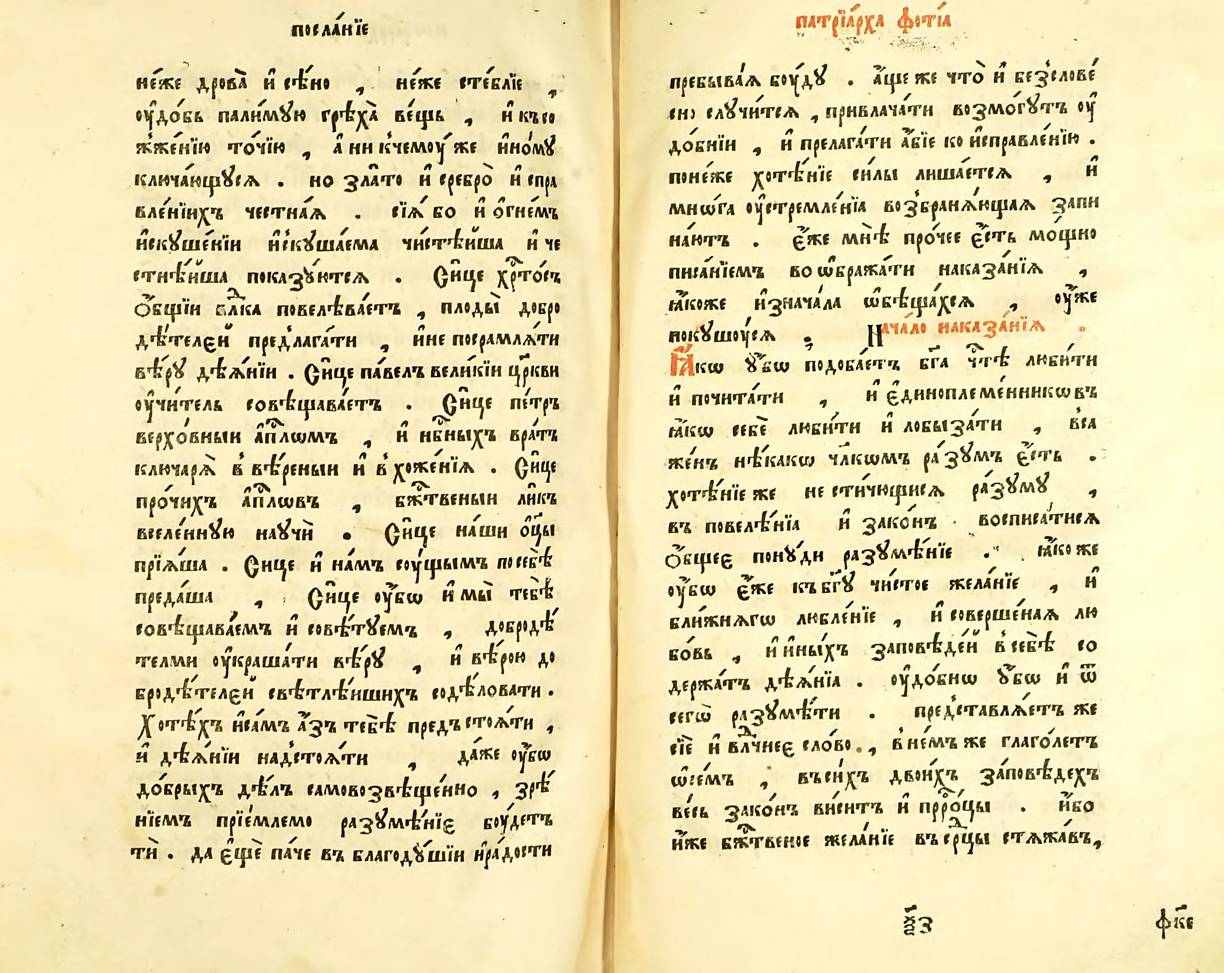 посла́нїе
не́же дрова̀ и҆ сѣ́но , не́же сте́блїе ,
ᲂу҆до́бь пали́мꙋю грѣха̀ ве́щь , и҆ къ со
жже́нїю то́чїю , а҆ ни к̾чемоу́ же и҆но́мꙋ
ключа́ющꙋсѧ . но зла́то и҆ сребро̀ и҆ спра
вле́нїихъ честна́ѧ . сїѧ́ бо и҆ ѻ҆гне́мъ
и҆скꙋше́нїи и҆скꙋша́ема чистѣ́йша и҆ че
стнѣ́йша показꙋ́ютсѧ . Си́це хрⷭ҇то́съ
Ѻ҆́бщїи влⷣка повелѣва́етъ , плоды̀ добро
дѣ́телей пред̾лага́ти , и҆ не посрамлѧ́ти
вѣ́рꙋ дѣѧ́нїи . Си́це па́велъ вели́кїи цр҃кви
ᲂу҆чи́тель совѣщава́етъ . Си́це пе́тръ
верхо́вныи а҆пⷭ҇лѡмъ , и҆ нбⷭ҇ныхъ вра́тъ
ключарѧ̀ в̾вѣ́реныи и҆ в̾хоже́нїѧ . Си́це
про́чихъ а҆пⷭ҇лѡвъ , бжⷭ҇твеныи ли́къ
вселе́ннꙋю наꙋчѝ . Си́це на́ши ѻ҆ц҃ы
прїѧ́ша . Си́це и҆ на́мъ соу́щымъ по себѣ̀
преда́ша , Си́це ᲂу҆́бѡ и҆ мы̀ тебѣ̀
совѣщава́емъ и҆ совѣ́тꙋемъ , доброде́
телми ᲂу҆краша́ти вѣ́рꙋ , и҆ вѣ́рою до
бродѣ́телей свѣтлѣ́ишихъ содѣ́ловати .
Хотѣ́хъ и҆ са́мъ а҆́зъ тебѣ̀ предъстоѧ́ти ,
и҆ дѣѧ́нїи над̾стоѧ́ти , да́же ᲂу҆́бѡ
до́брыхъ дѣ́лъ самовозвѣще́нно , зрѣ́
нїемъ прїе́млемо разꙋмѣ́нїе боу́детъ
тѝ . да є҆щѐ па́че въ благодꙋ́шїи и҆ ра́дости
патрїа́рха фо́тїа
пребыва́ѧ боу́дꙋ . а҆́ще же что̀ и҆ без̾слове́
сно слꙋчи́тсѧ , привлача́ти возмо́гꙋтъ ᲂу҆
до́бнїи , и҆ прелага́ти а҆́бїе ко и҆справле́нїю .
поне́же хотѣ́нїе си́лы лиша́етсѧ , и҆
мнѡ́га ᲂу҆стремле́нїа воз̾бранѧ́ющаѧ запи
на́ютъ . є҆́же мнѣ̀ про́чее є҆́сть мо́щно
писа́нїемъ во ѡ҆бража́ти наказа́нїѧ ,
ꙗ҆́коже и҆знача́ла ѡ҆бѣща́хсѧ , ᲂу҆́же
покꙋшоу́сѧ , Нача́ло наказа́нїѧ .
Ꙗ҆́кѡ ᲂу҆́бѡ подоба́етъ бг҃а чⷭ҇тѣ люби́ти
и҆ почита́ти , и҆ є҆диноплеме́нникѡвъ
ꙗ҆́кѡ себѐ люби́ти и҆ лобыза́ти , вса
же́нъ нѣ́какѡ чл҃кѡмъ ра́зꙋмъ є҆́сть .
хотѣ́нїе же не стичющисѧ ра́зꙋмꙋ ,
въ повелѣ́нїа и҆ зако́нъ восписа́тисѧ
Ѻ҆́бщее понꙋ́ди разꙋмѣ́нїе . ꙗ҆́коже
ᲂу҆́бѡ є҆́же къ бг҃ꙋ чи́стое жела́нїе , и҆
бли́жнѧгѡ любле́нїе , и҆ соверше́наѧ лю
бо́вь , и҆ и҆ны́хъ за́повѣдей в̾ себѣ̀ со
держа́тъ дѣѧ́нїа . ᲂу҆до́бнѡ ᲂу҆́бѡ и҆ ѿ
сегѡ̀ разꙋмѣ́ти . пред̾ставлѧ́етъ же
сїѐ и҆ влⷣчнее сло́во . , в̾ не́мъ же глаго́летъ
ѡ҆ се́мъ , въ си́хъ двои́хъ за́повѣдехъ
ве́сь зако́нъ виси́тъ и҆ прⷪ҇ро́цы . и҆́бо
и҆́же бжⷭ҇твеное жела́нїе въ срⷣцы стѧжа́въ,
фк҃е